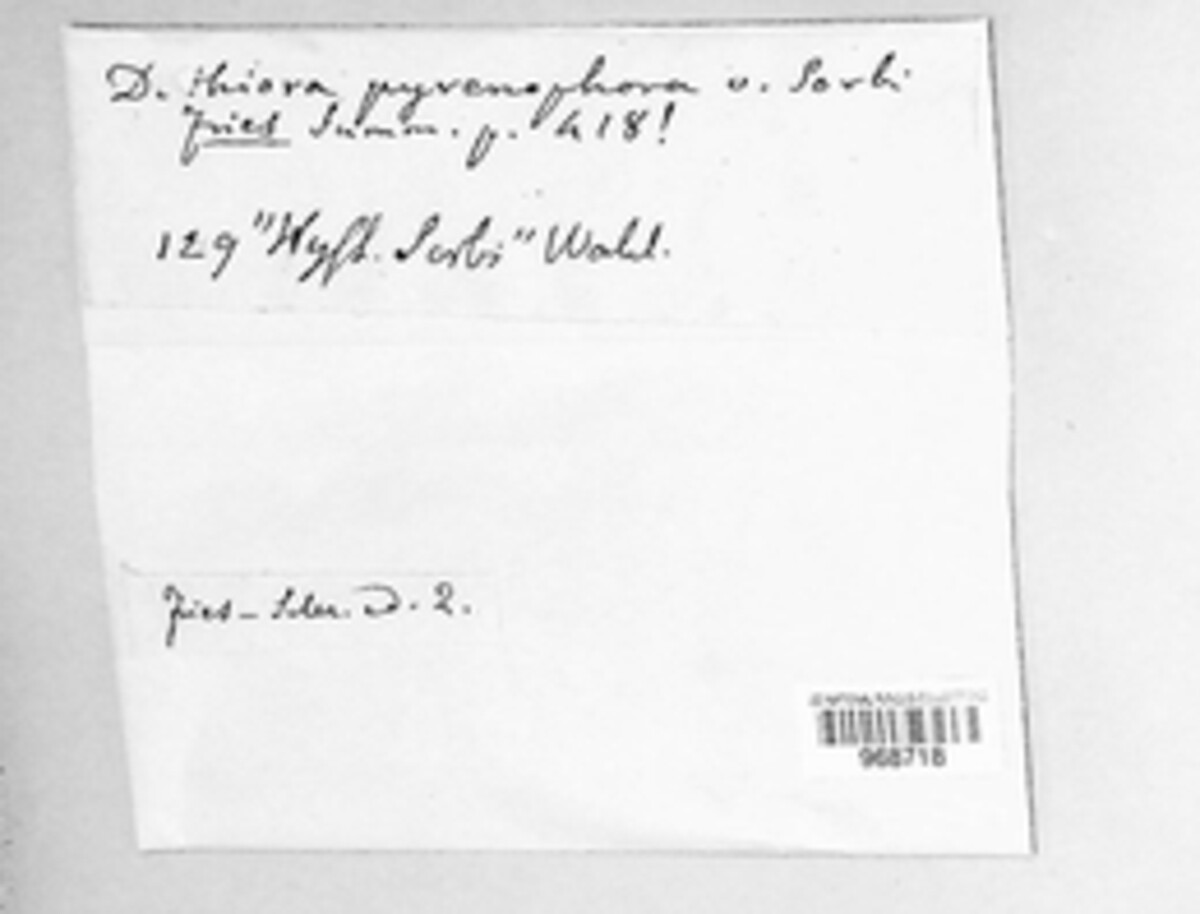 D. thiora pyrenophora v. Sorbi
Fries Summ. p. 418!
129 "Hyst. Sorbi" Wahl.
Fries – Scler. 2.
968718